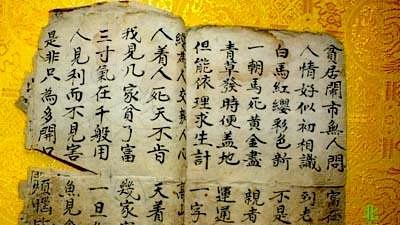 貧居鬧市無人問 富在
人情好似初相識 到老
白馬紅纓彩色新 不是
一朝馬死黃金盡 親者
青草發時便蓋地 運
但能依理求生計 一字
人 人 高山
人着人死天不肯 天着
我見几家貧了富 幾家
三寸氣在千般用 一旦
人見利而不見害 魚見
是非只為多開口 煩惱皆